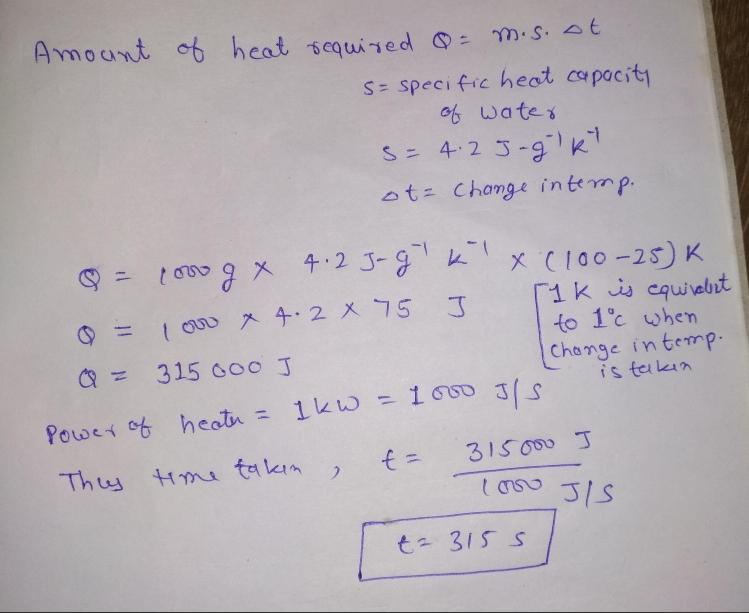 Amount of heat required Q = m.s. Δt
s = specific heat capacity
of water
s = 4.2 J-g⁻¹ K⁻¹
Δt = Change in temp.
Q = 1000 g x 4.2 J-g⁻¹ K⁻¹ x (100-25) K
Q = 1000 x 4.2 x 75 J
[1 K is equivalent
to 1°C when
change in temp.
is taken
Q = 315000 J
Power of heatr = 1kW = 1000 J/S
Thus time taken, t = 315000 J / 1000 J/S
t = 315 s